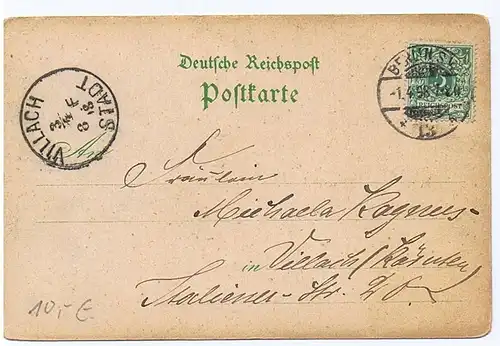 Deutsche Reichspost
Postkarte
VILLACH STADT
3/4
98
BERLIN S.
-1.4.98.
13
Fräulein
Michaela Kagnus-
in Villach (Kärnten)
Italiener-Str. 20.
10,- €.